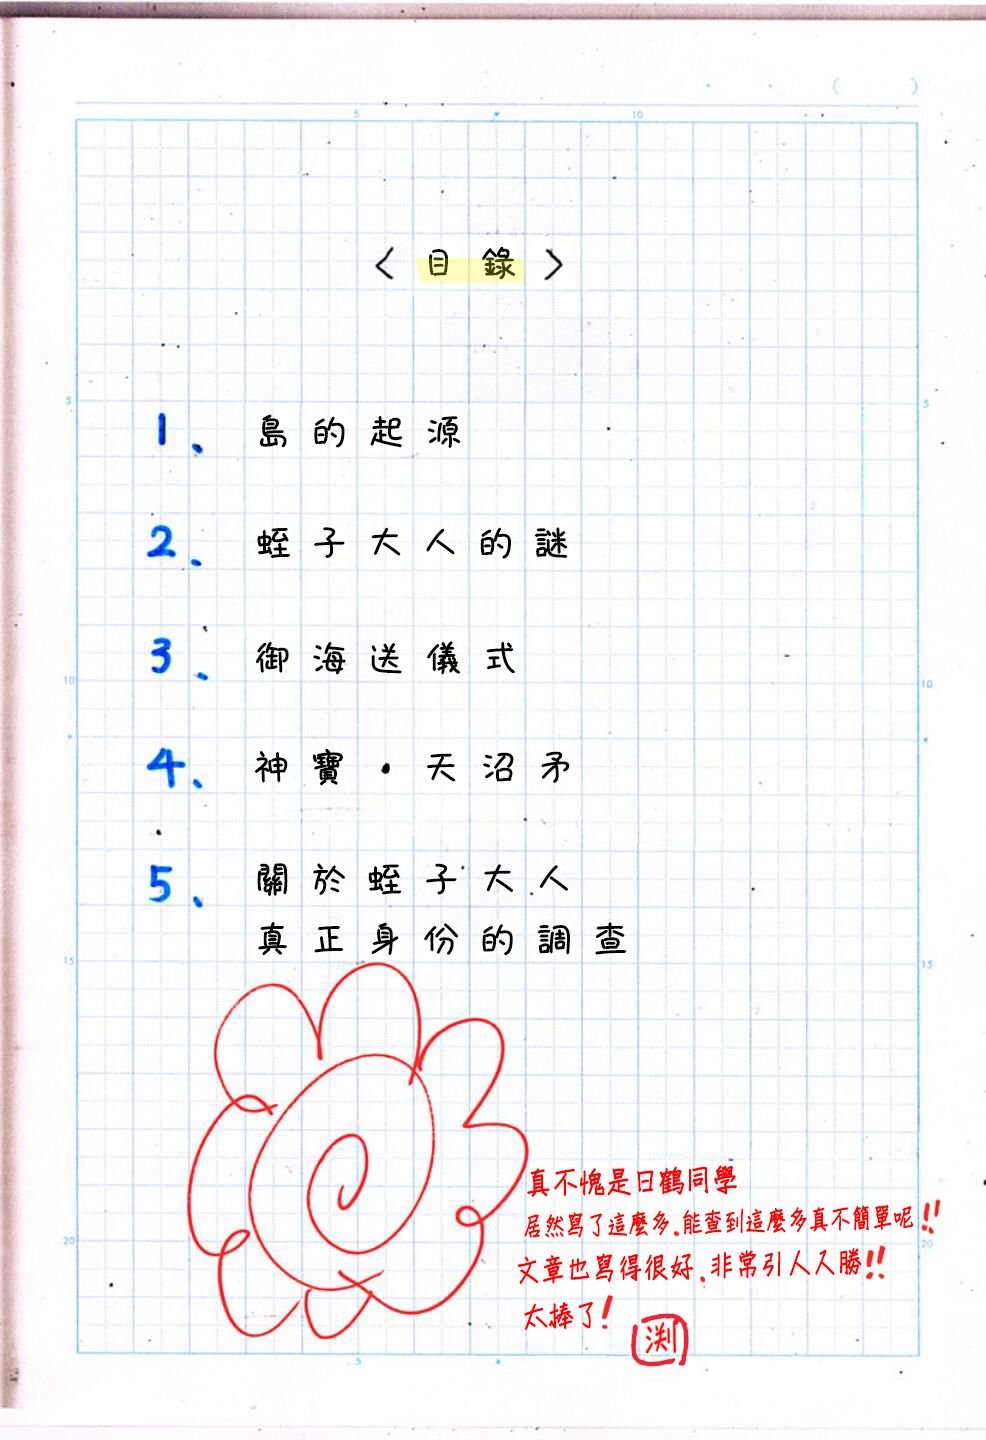 ( )
5 10
〈目錄〉
5 5
1、島的起源
2、蛭子大人的謎
3、御海送儀式
10 10
4、神寶・天沼矛
5、關於蛭子大人
真正身份的調查
15 15
真不愧是日鶴同學
居然寫了這麼多.能查到這麼多真不簡單呢!!
20 20
文章也寫得很好.非常引人入勝!!
太棒了!
渕
5